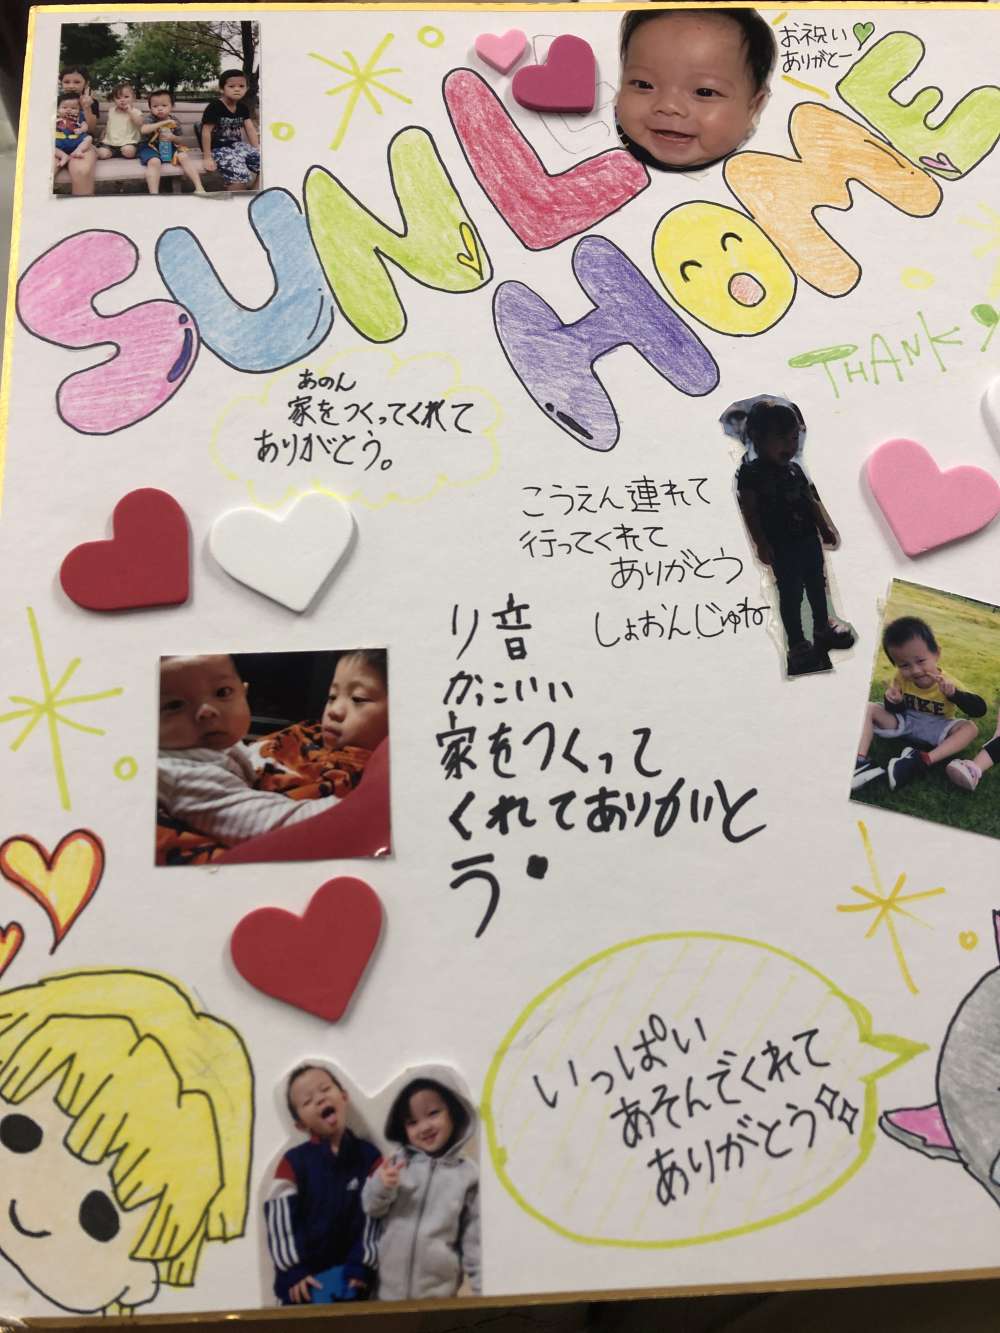 お祝い
ありがとー
SUN L
HOME
THANK
あのん
家をつくってくれて
ありがとう。
こうえん連れて
行ってくれて
ありがとう
しょおん.じゅね
り音
かっこいい
家をつくって
くれてありがと
う.
いっぱい
あそんでくれて
ありがとう